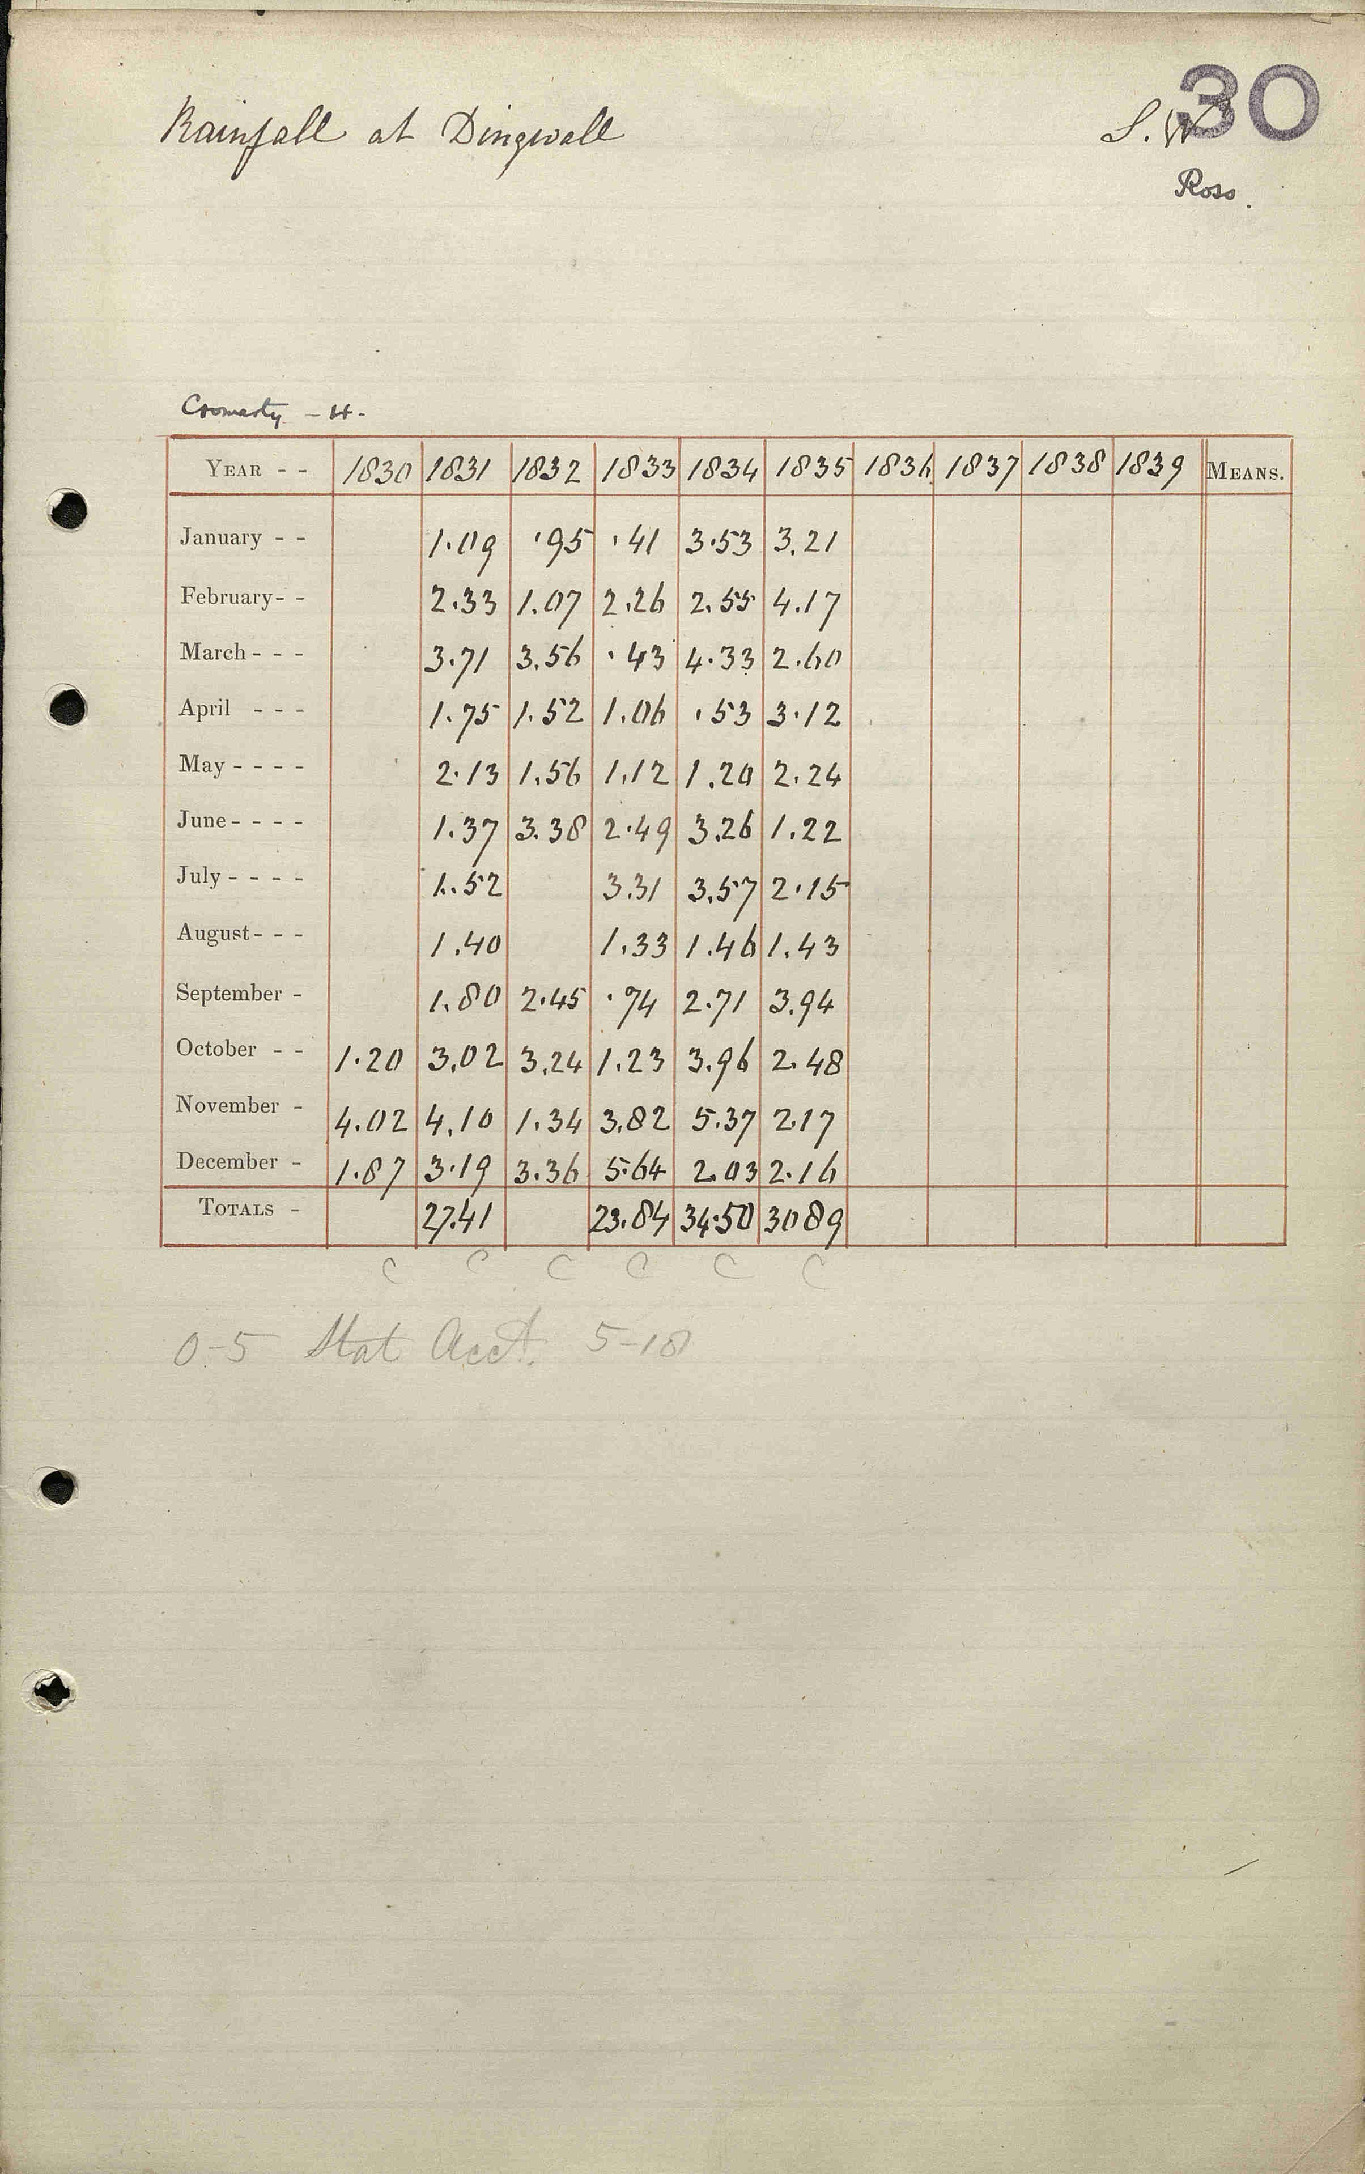 30
Rainfall at Dingwall S.W
Ross.
Cromarty - H.
YEAR - - 1830 1831 1832 1833 1834 1835 1836 1837 1838 1839 MEANS.
January - - 1.09 .95 .41 3.53 3.21
February - - 2.33 1.07 2.26 2.55 4.17
March - - - 3.71 3.56 .43 4.33 2.60
April - - - 1.75 1.52 1.06 .53 3.12
May - - - - 2.13 1.56 1.12 1.20 2.24
June - - - - 1.37 3.38 2.49 3.26 1.22
July - - - - 1.52 3.31 3.57 2.15
August - - - 1.40 1.33 1.46 1.43
September - 1.80 2.45 .74 2.71 3.94
October - - 1.20 3.02 3.24 1.23 3.96 2.48
November - 4.02 4.10 1.34 3.82 5.37 2.17
December - 1.87 3.19 3.36 5.64 2.03 2.16
TOTALS - 27.41 23.84 34.50 30 89
C C C C C C
0-5 Stat Acct. 5-18